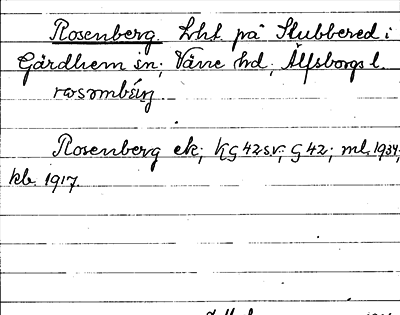 Rosenberg. Lht. på Stubbered i
Gärdhem sn; Väne hd, Älfsborgs l.
Rosenberg ek; KG 42 sv; G 42; ml. 1934;
kb. 1917.